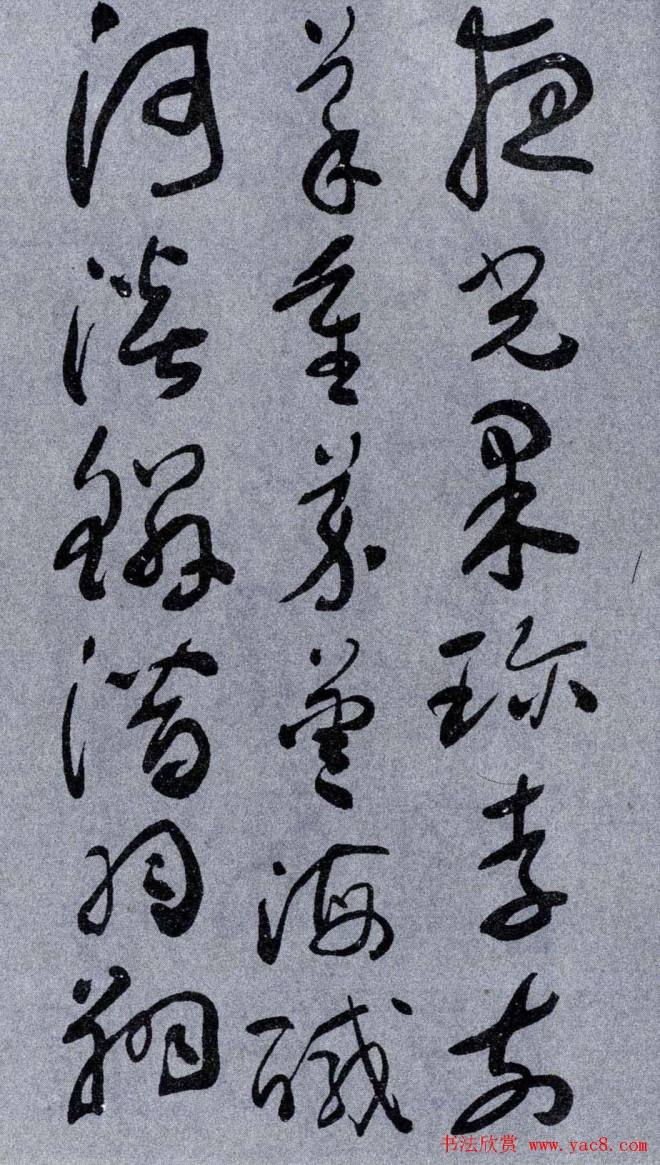 夜光果珍李柰
菜重芥薑海鹹
河淡鱗潛羽翔
书法欣赏 www.yac8.com